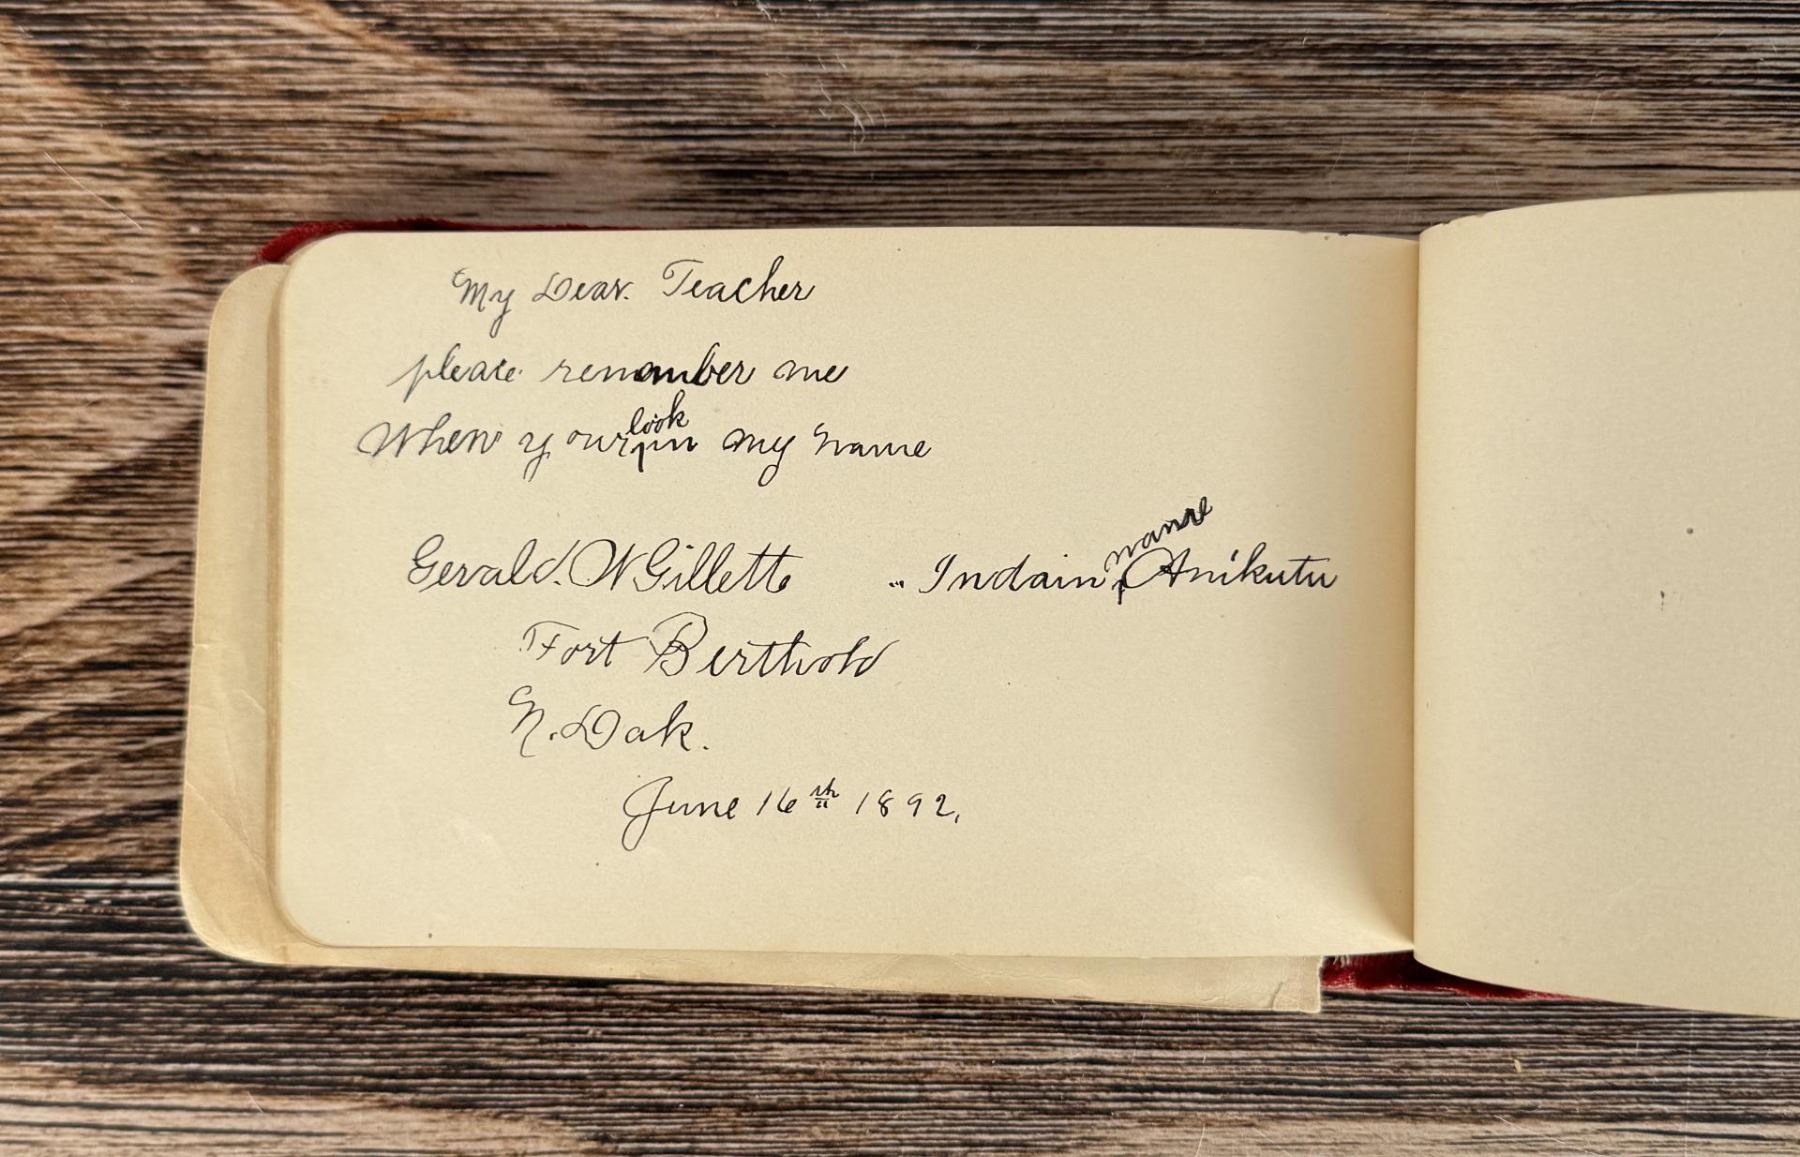 My Dear. Teacher
please remamber me
When your look in my name
Gerald. W Gillette " Indain name Anikutu
Fort Berthold
N. Dak.
June 16th 1892.